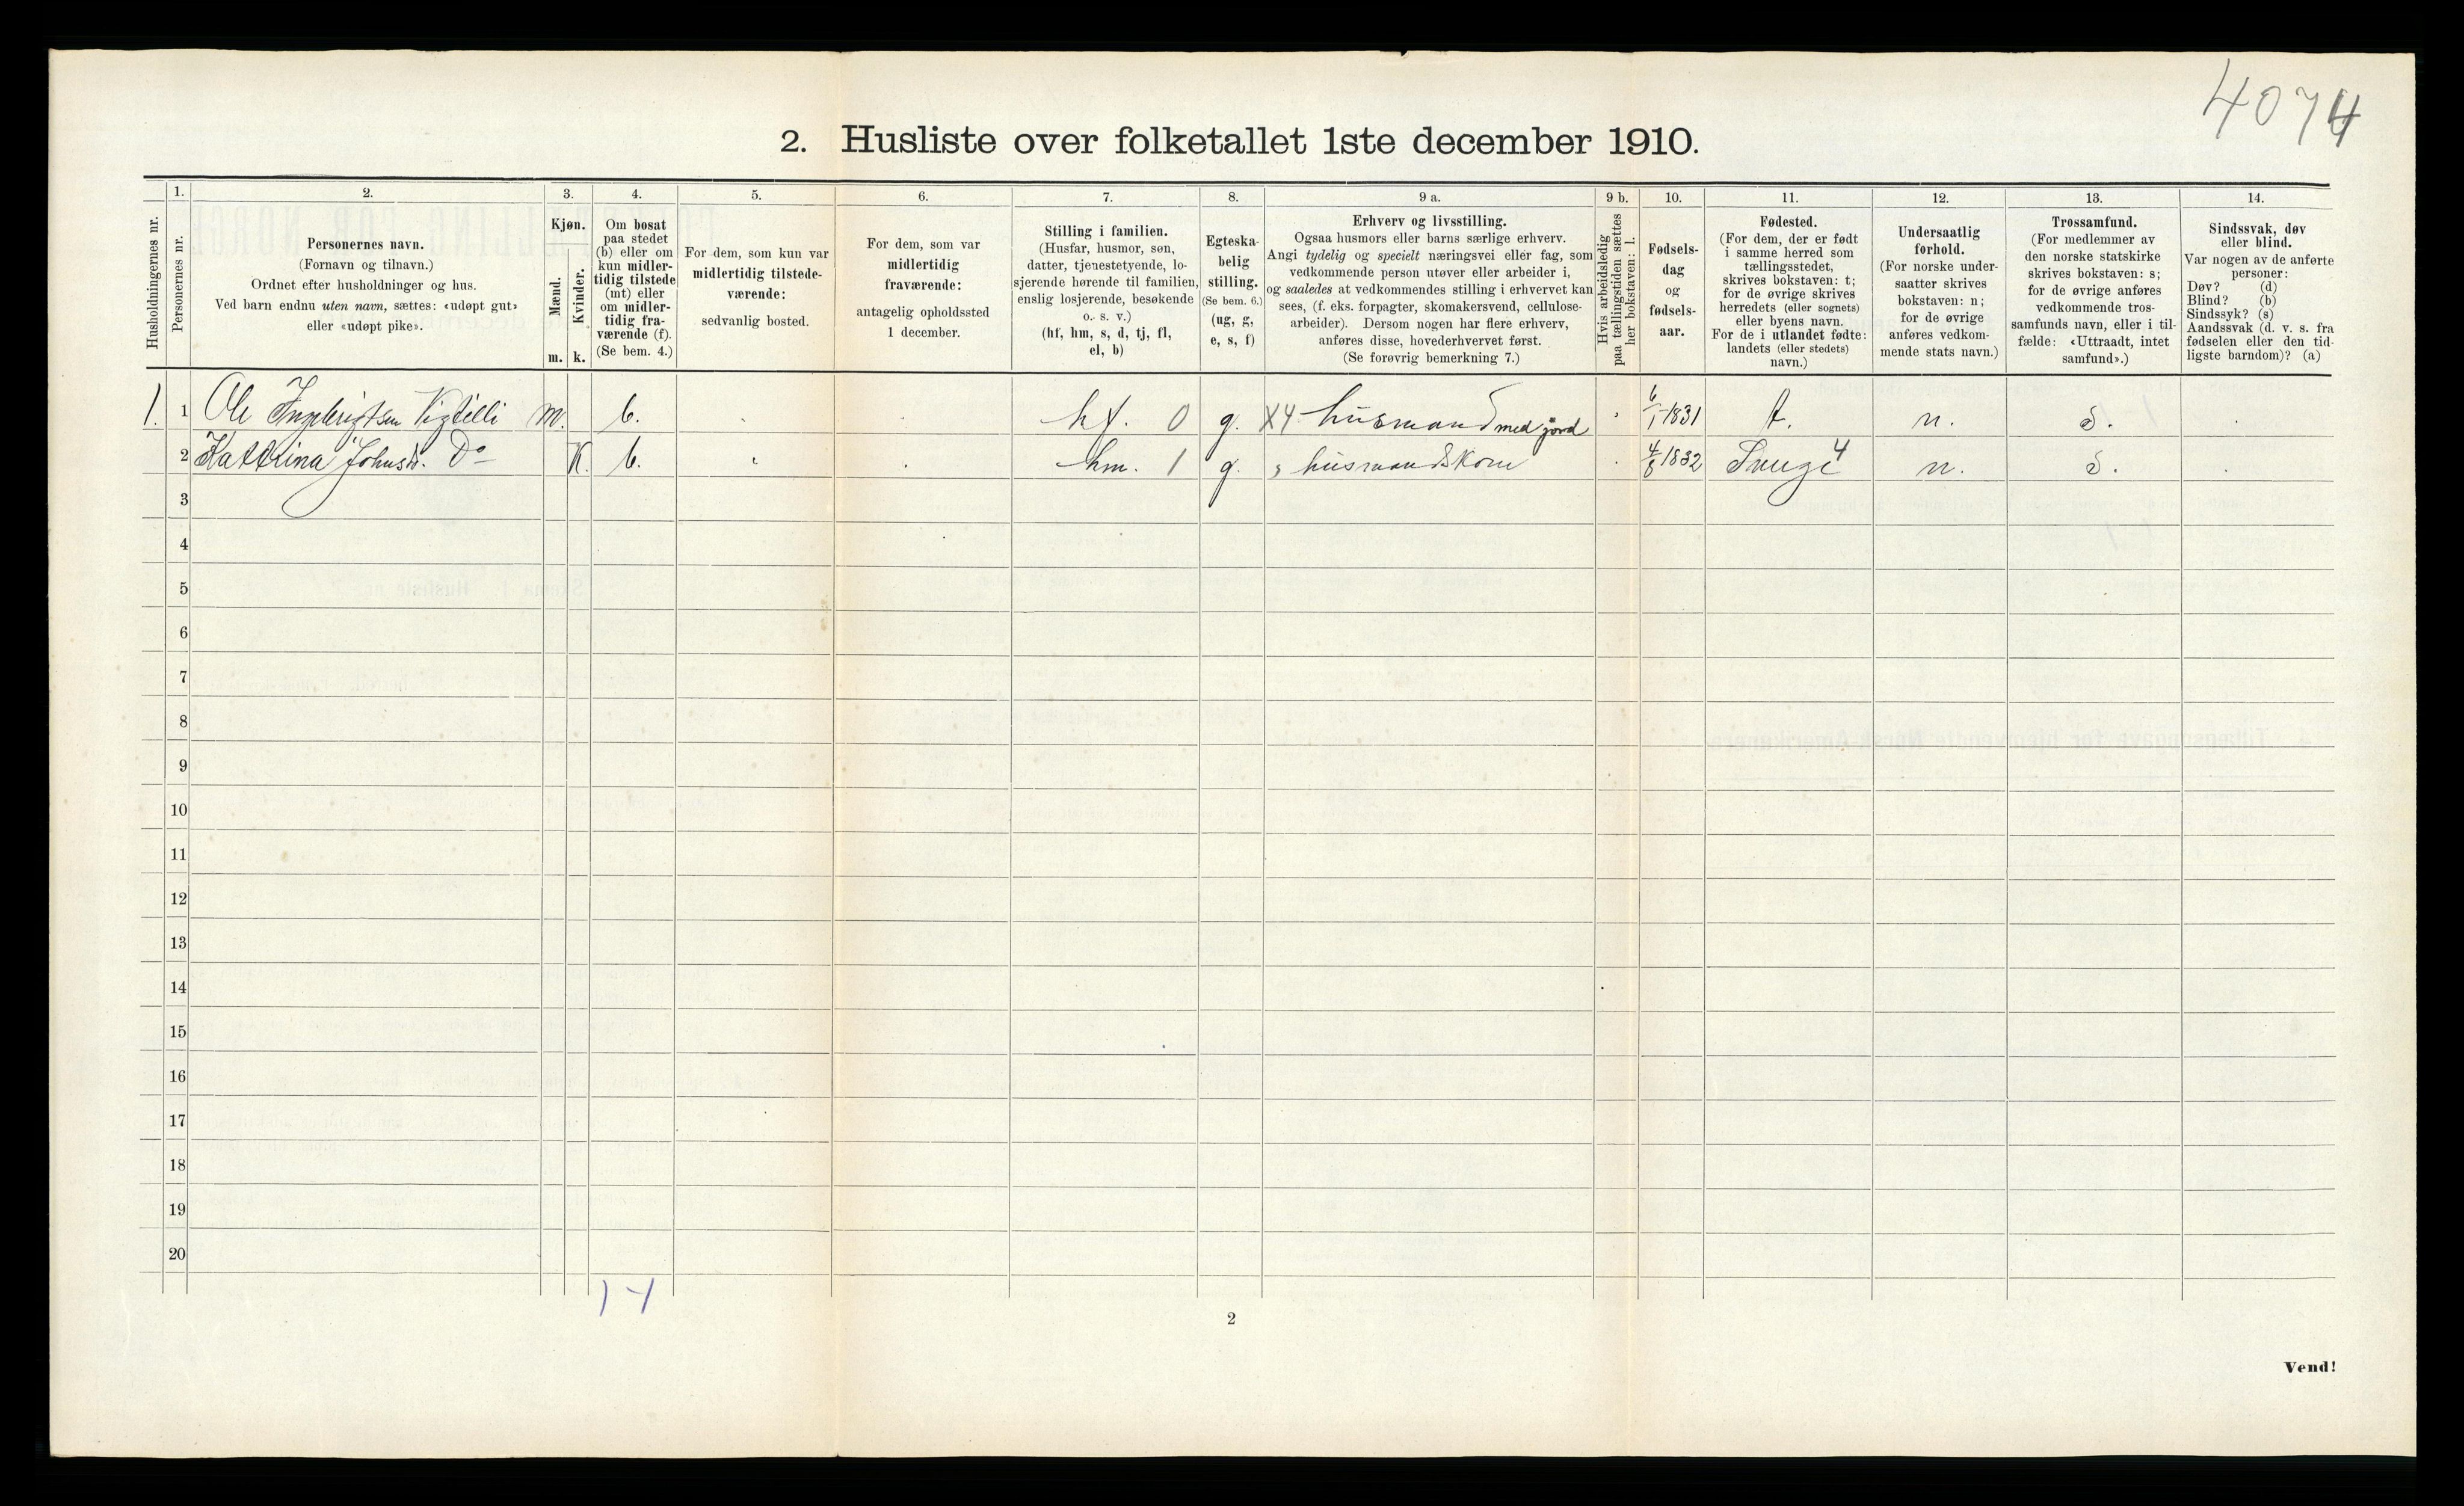 4074
2. Husliste over folketallet 1ste december 1910.
Husholdningernes nr.
1.
Personernes nr.
2.
Personernes navn.
(Fornavn og tilnavn.)
Ordnet efter husholdninger og hus.
Ved barn endnu uten navn, sættes: «udøpt gut»
eller «udøpt pike».
3.
Kjøn.
Mænd.
Kvinder.
m. k.
4.
Om bosat
paa stedet
(b) eller om
kun midler-
tidig tilstede
(mt) eller
om midler-
tidig fra-
værende (f).
(Se bem. 4.)
5.
For dem, som kun var
midlertidig tilstede-
værende:
sedvanlig bosted.
6.
For dem, som var
midlertidig
fraværende:
antagelig opholdssted
1 december.
7.
Stilling i familien.
(Husfar, husmor, søn,
datter, tjenestetyende, lo-
sjerende hørende til familien,
enslig losjerende, besøkende
o. s. v.)
(hf, hm, s, d, tj, fl,
el, b)
8.
Egteska-
belig
stilling.
(Se bem. 6.)
(ug, g,
e, s, f)
9 a.
Erhverv og livsstilling.
Ogsaa husmors eller barns særlige erhverv.
Angi tydelig og specielt næringsvei eller fag, som
vedkommende person utøver eller arbeider i,
og saaledes at vedkommendes stilling i erhvervet kan
sees, (f. eks. forpagter, skomakersvend, cellulose-
arbeider). Dersom nogen har flere erhverv,
anføres disse, hovederhvervet først.
(Se forøvrig bemerkning 7.)
9 b.
Hvis arbeidsledig
paa tællingstiden sættes
her bokstaven: l.
10.
Fødsels-
dag
og
fødsels-
aar.
11.
Fødested.
(For dem, der er født
i samme herred som
tællingsstedet,
skrives bokstaven: t;
for de øvrige skrives
herredets (eller sognets)
eller byens navn.
For de i utlandet fødte:
landets (eller stedets)
navn.)
12.
Undersaatlig
forhold.
(For norske under-
saatter skrives
bokstaven: n;
for de øvrige
anføres vedkom-
mende stats navn.)
13.
Trossamfund.
(For medlemmer av
den norske statskirke
skrives bokstaven: s;
for de øvrige anføres
vedkommende tros-
samfunds navn, eller i til-
fælde: «Uttraadt, intet
samfund».)
14.
Sindssvak, døv
eller blind.
Var nogen av de anførte
personer:
Døv? (d)
Blind? (b)
Sindssyk? (s)
Aandssvak (d. v. s. fra
fødselen eller den tid-
ligste barndom)? (a)
1. 1 Ole Ingebrigtsen m. b. hf. 0 g. X4 husmand med jord 6/1-1831 t. n. s.
2 Kathrina Johnsdt. Do K. b. hm. 1 g. " husmandskone 4/8 1832 4 n. s.
3
4
5
6
7
8
9
10
11
12
13
14
15
16
17
18
19
20
2
Vend!